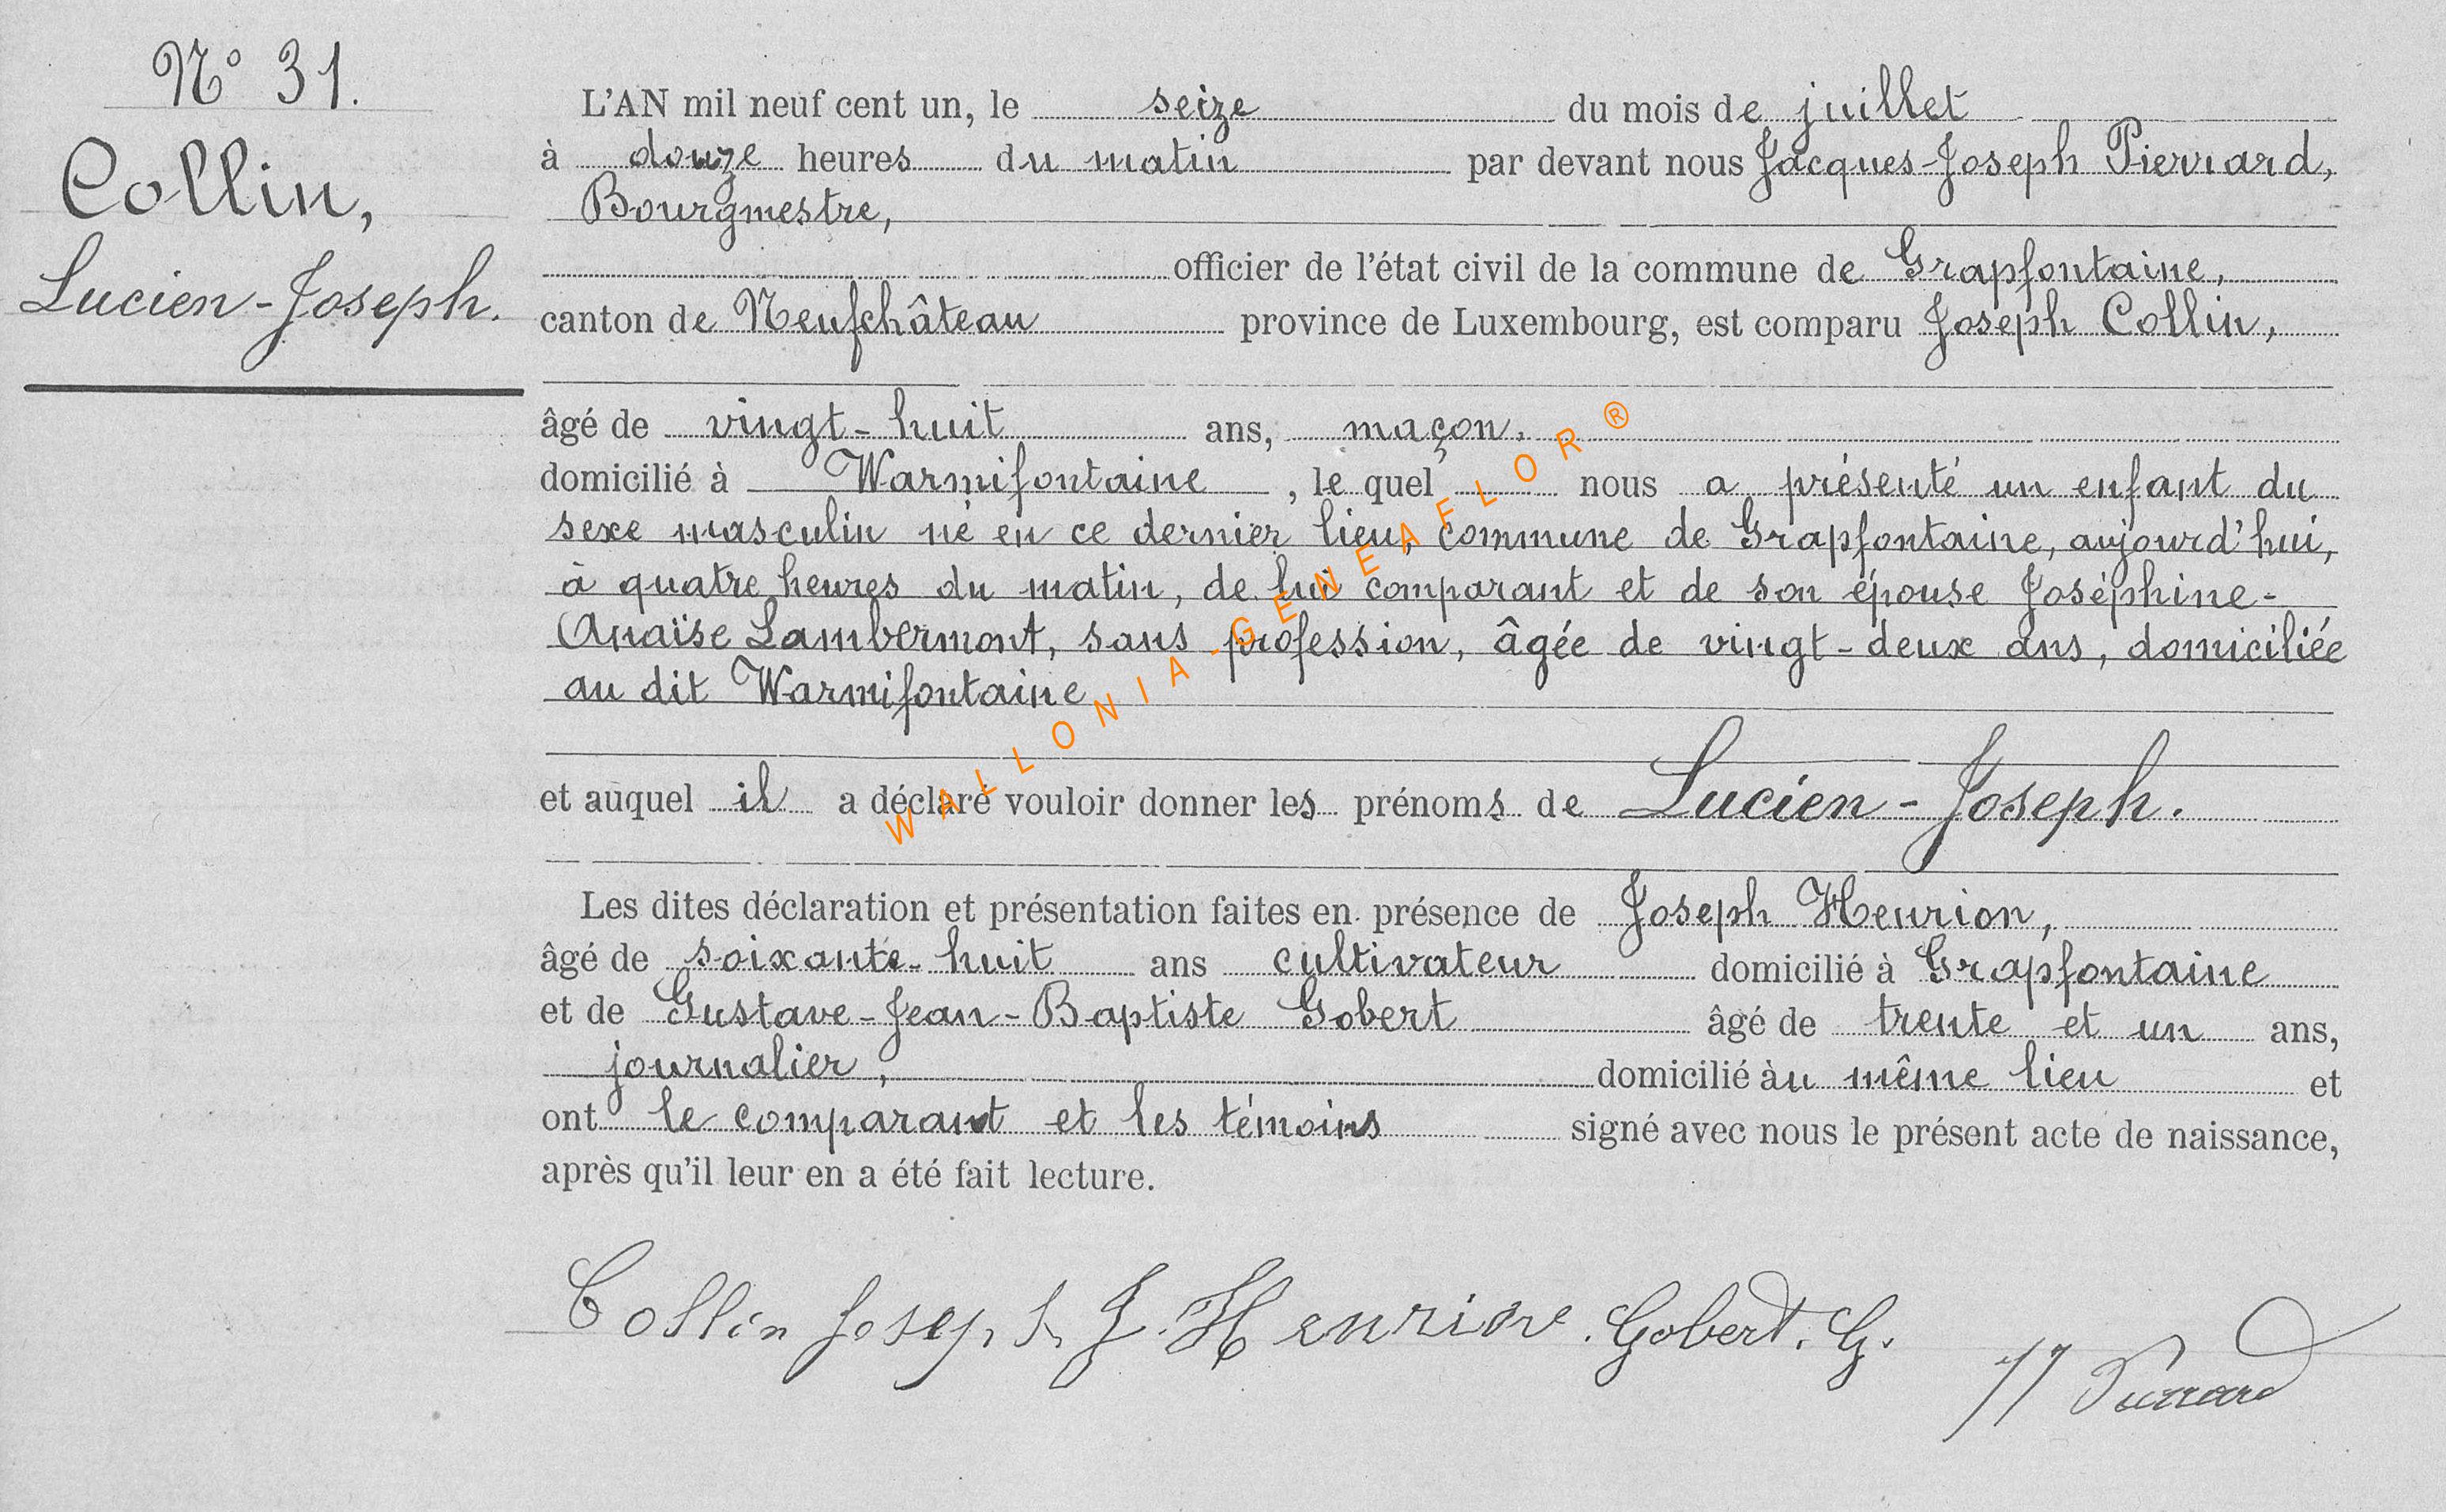 N° 31.
Collin,
Lucien-Joseph.
L'AN mil neuf cent un, le seize du mois de juillet
à douze heures du matin par devant nous Jacques-Joseph Pierrard,
Bourgmestre,
officier de l'état civil de la commune de Grapfontaine,
canton de Neufchâteau province de Luxembourg, est comparu Joseph Collin,
âgé de vingt-huit ans, maçon,
domicilié à Warmifontaine, le quel nous a présenté un enfant du
sexe masculin né en ce dernier lieu, commune de Grapfontaine, aujourd'hui,
à quatre heures du matin, de lui comparant et de son épouse Joséphine-
Anaïse Lambermont, sans profession, âgée de vingt-deux ans, domiciliée
au dit Warmifontaine
et auquel il a déclaré vouloir donner les prénoms de Lucien-Joseph.
Les dites déclaration et présentation faites en présence de Joseph Henrion,
âgé de soixante-huit ans cultivateur domicilié à Grapfontaine
et de Gustave-Jean-Baptiste Gobert âgé de trente et un ans,
journalier, domicilié au même lieu et
ont le comparant et les témoins signé avec nous le présent acte de naissance,
après qu'il leur en a été fait lecture.
Collin Joseph J. Henrion. Gobert. G.
JJ Pierrard
WALLONIA-GENEAFLOR®